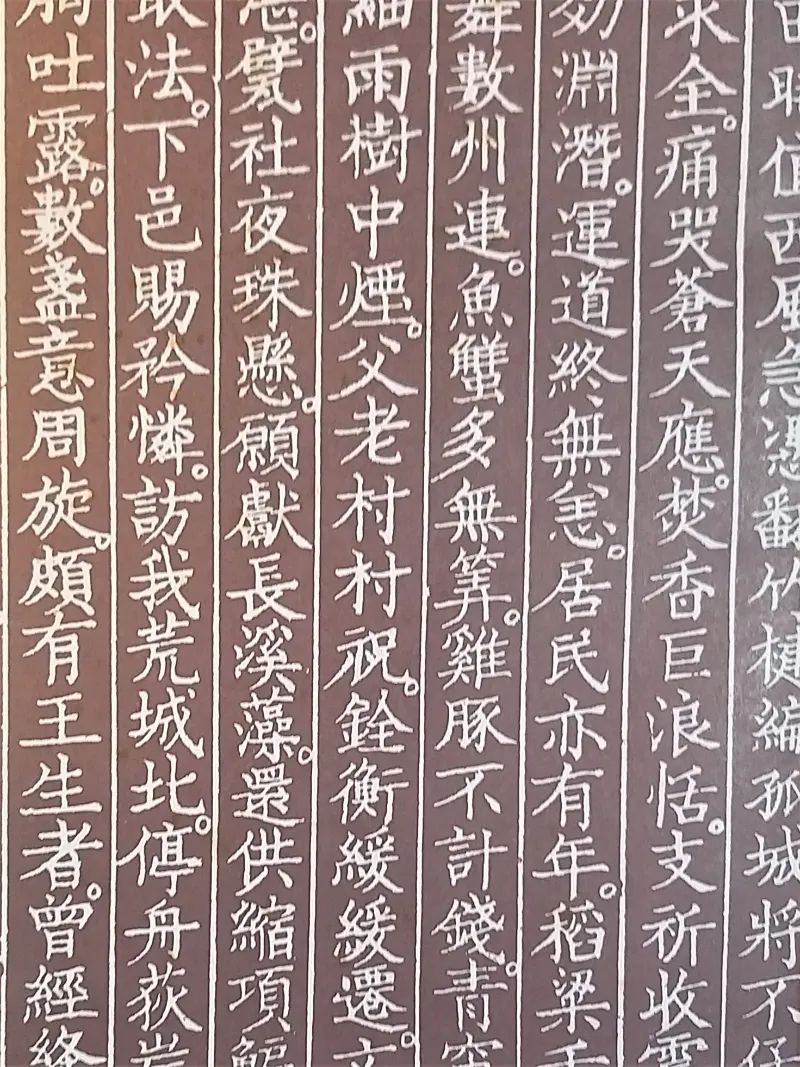 時值西風急憑翻竹楗編孤城將不
求全。痛哭蒼天應。焚香巨浪恬。支祈收
淵潛。運道終無恙。居民亦有年。稻粱
舞數州連。魚蟹多無筭。雞豚不計錢。青
細雨樹中煙。父老村村祝。銓衡緩緩遷。
甓社夜珠懸。願獻長溪藻。還供縮項
取法。下邑賜矜憐。訪我荒城北。停舟荻岸
胸吐露。數盞意周旋。頗有王生者。曾經